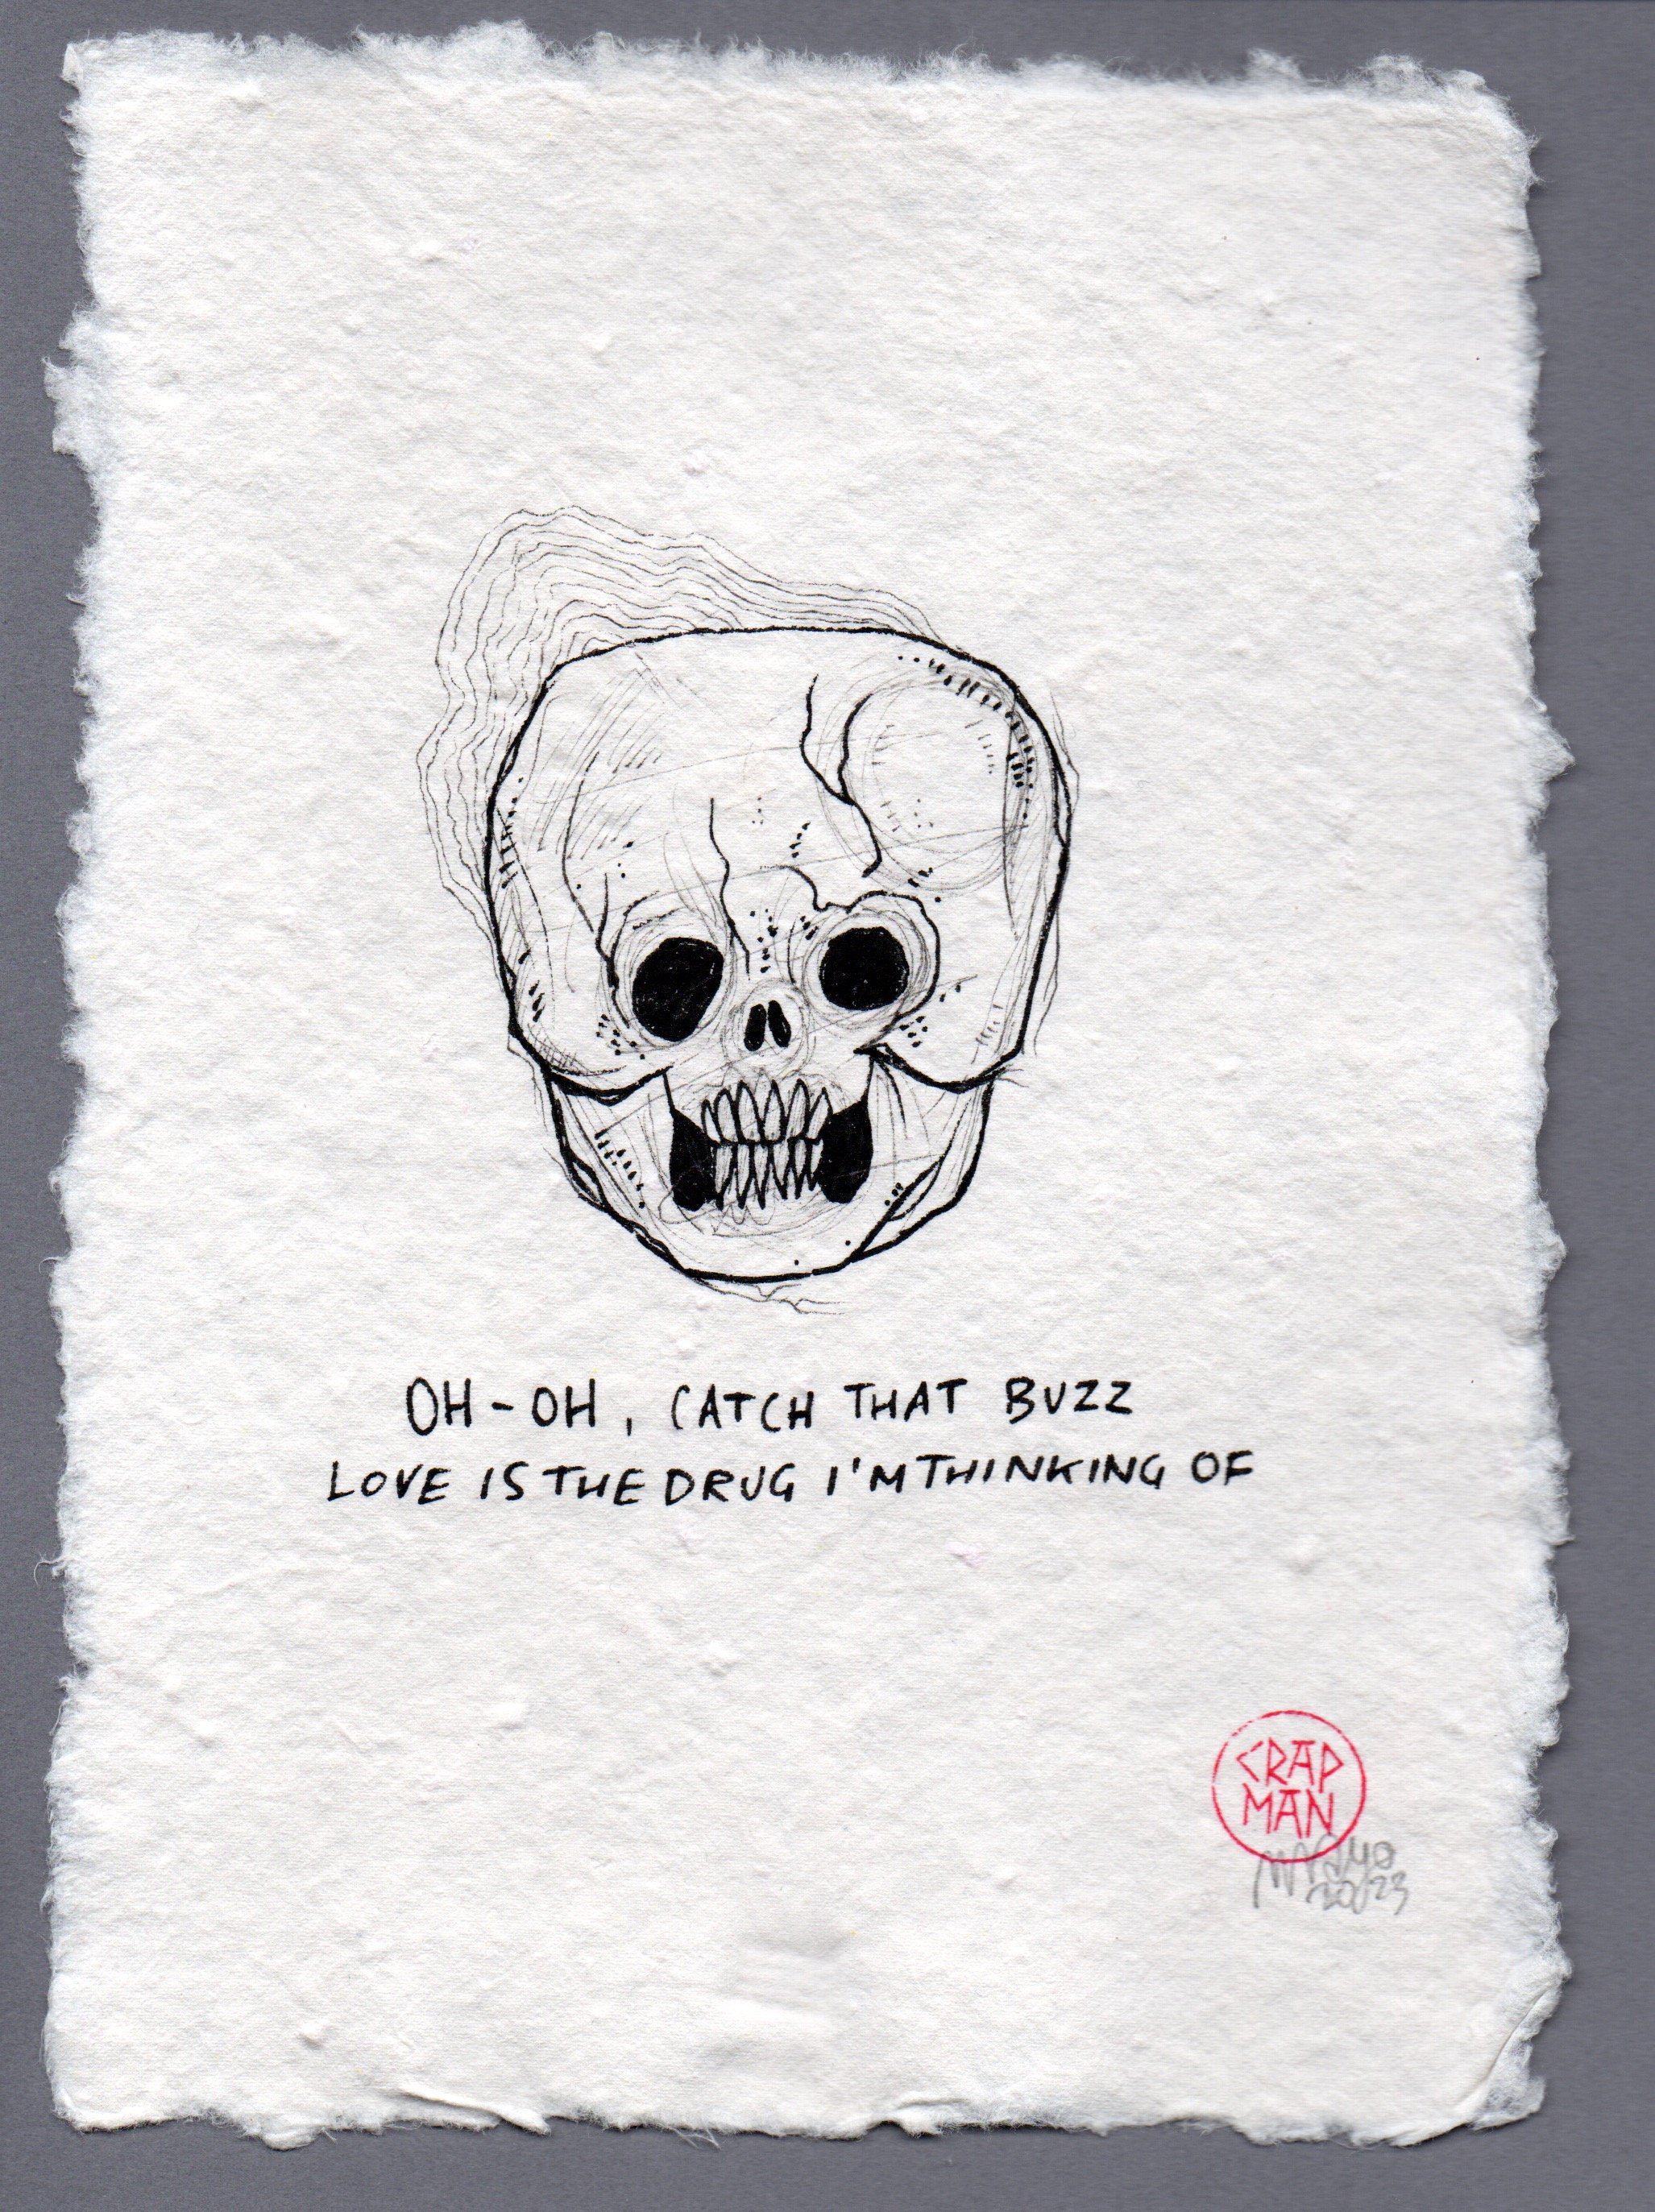 OH-OH, CATCH THAT BUZZ
LOVE IS THE DRUG I'M THINKING OF
CRAP
MAN
2023